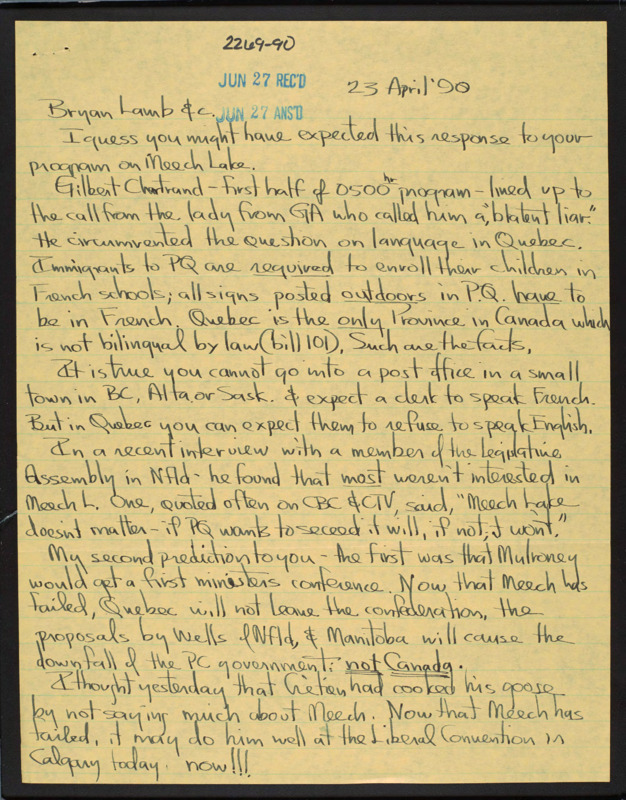 2269-90
JUN 27 REC'D
23 April '90
Bryan Lamb &c.
JUN 27 ANS'D
I guess you might have expected this response to your
program on Meech Lake.
Gilbert Chartrand - first half of 0500 hr program - lined up to
the call from the lady from GA who called him a "blatent liar."
He circumvented the question on language in Quebec.
Immigrants to PQ are required to enroll their children in
French schools; all signs posted outdoors in P.Q. have to
be in French. Quebec is the only Province in Canada which
is not bilingual by law (bill 101). Such are the facts.
It is true you cannot go into a post office in a small
town in BC, Alta. or Sask. & expect a clerk to speak French.
But in Quebec you can expect them to refuse to speak English.
In a recent interview with a member of the Legislative
Assembly in Nfld - he found that most weren't interested in
Meech L. One, quoted often on CBC & CTV, said, "Meech Lake
doesn't matter - if PQ wants to seceed it will, if not, it won't."
My second prediction to you - the first was that Mulroney
would get a first ministers conference. Now that Meech has
failed, Quebec will not leave the confederation, the
proposals by Wells of Nfld, & Manitoba will cause the
downfall of the PC government; not Canada.
I thought yesterday that Cretien had cooked his goose
by not saying much about Meech. Now that Meech has
failed, it may do him well at the Liberal Convention in
Calgary today. now!!!